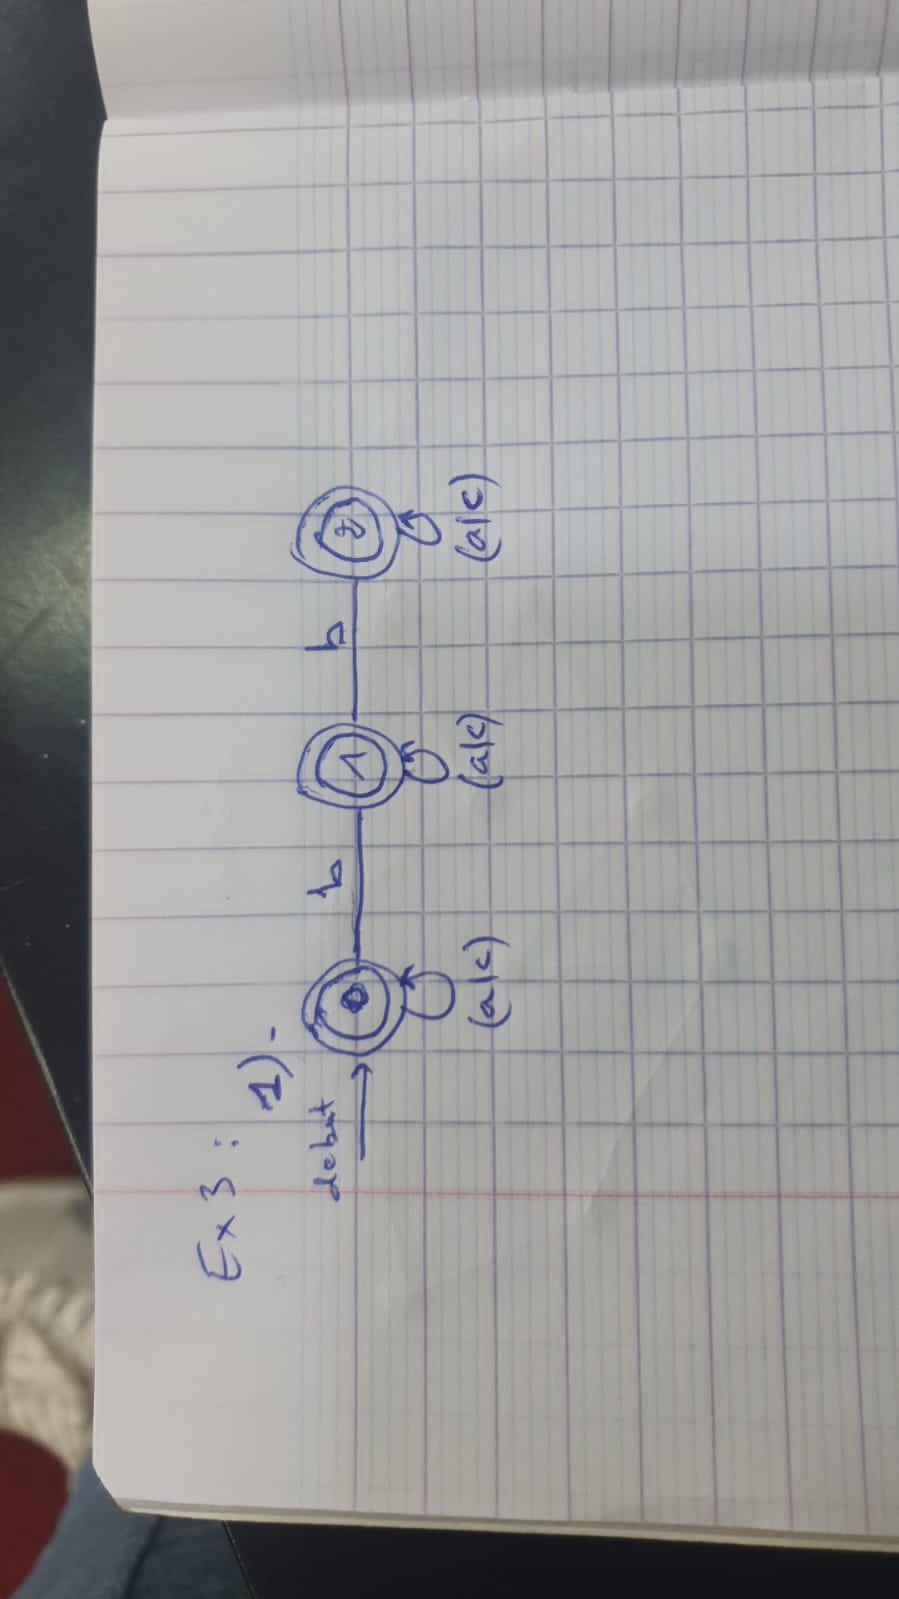 Ex 3 : 1) -
debut
0 b 1 b 2
(a|c) (a|c) (a|c)